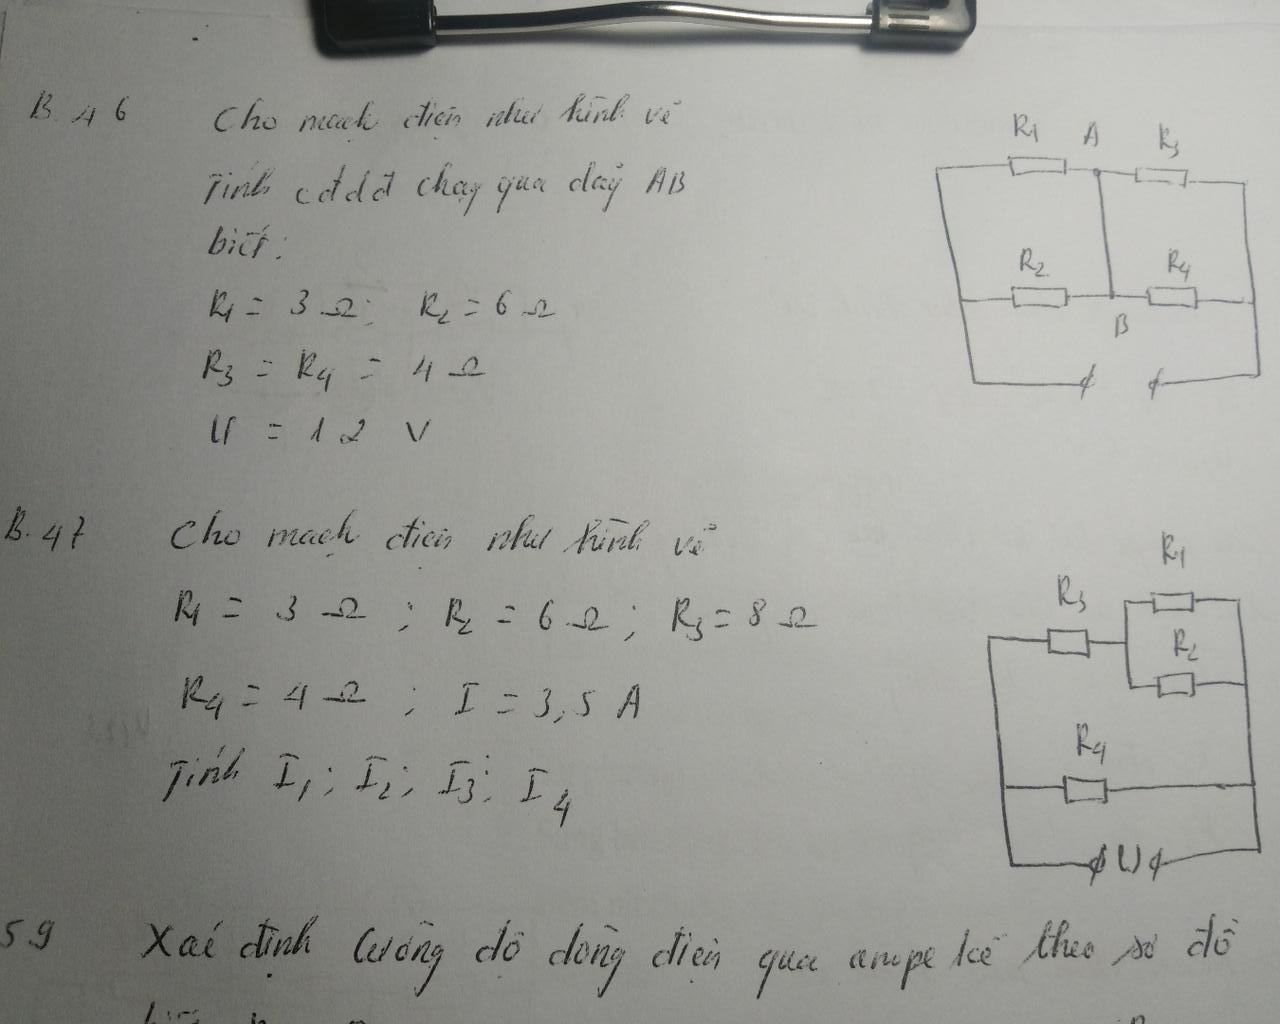 B.46 Cho mạch điện như hình vẽ
Tính cđdđ chạy qua dây AB
biết:
R1 = 3 Ω; R2 = 6 Ω
R3 = R4 = 4 Ω
U = 12 V
R1 A R3
R2 R4
B
B.47 Cho mạch điện như hình vẽ
R1 = 3 Ω ; R2 = 6 Ω ; R3 = 8 Ω
R4 = 4 Ω ; I = 3,5 A
Tính I1; I2; I3; I4
R1
R3
R2
R4
U
59 Xác định cường độ dòng điện qua ampe kế theo sơ đồ